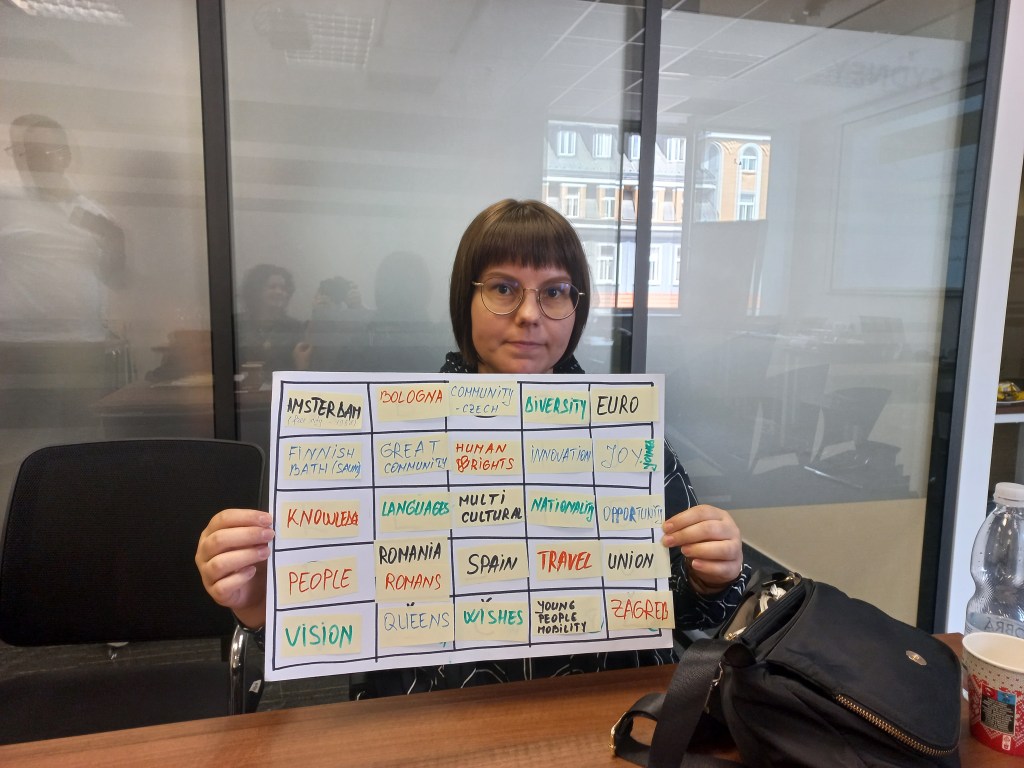 AMSTERDAM
BOLOGNA
COMMUNITY
-CZECH
DIVERSITY
EURO
FINNISH
BATH (SAUNA)
GREAT
COMMUNITY
HUMAN
RIGHTS
INNOVATION
JOY
KNOWLEDG
LANGUAGES
MULTI
CULTURAL
NATIONALITY
OPPORTUNITY
PEOPLE
ROMANIA
ROMANS
SPAIN
TRAVEL
UNION
VISION
QUEENS
WISHES
YOUNG
PEOPLE
MOBILITY
ZAGREB
SYDNEY